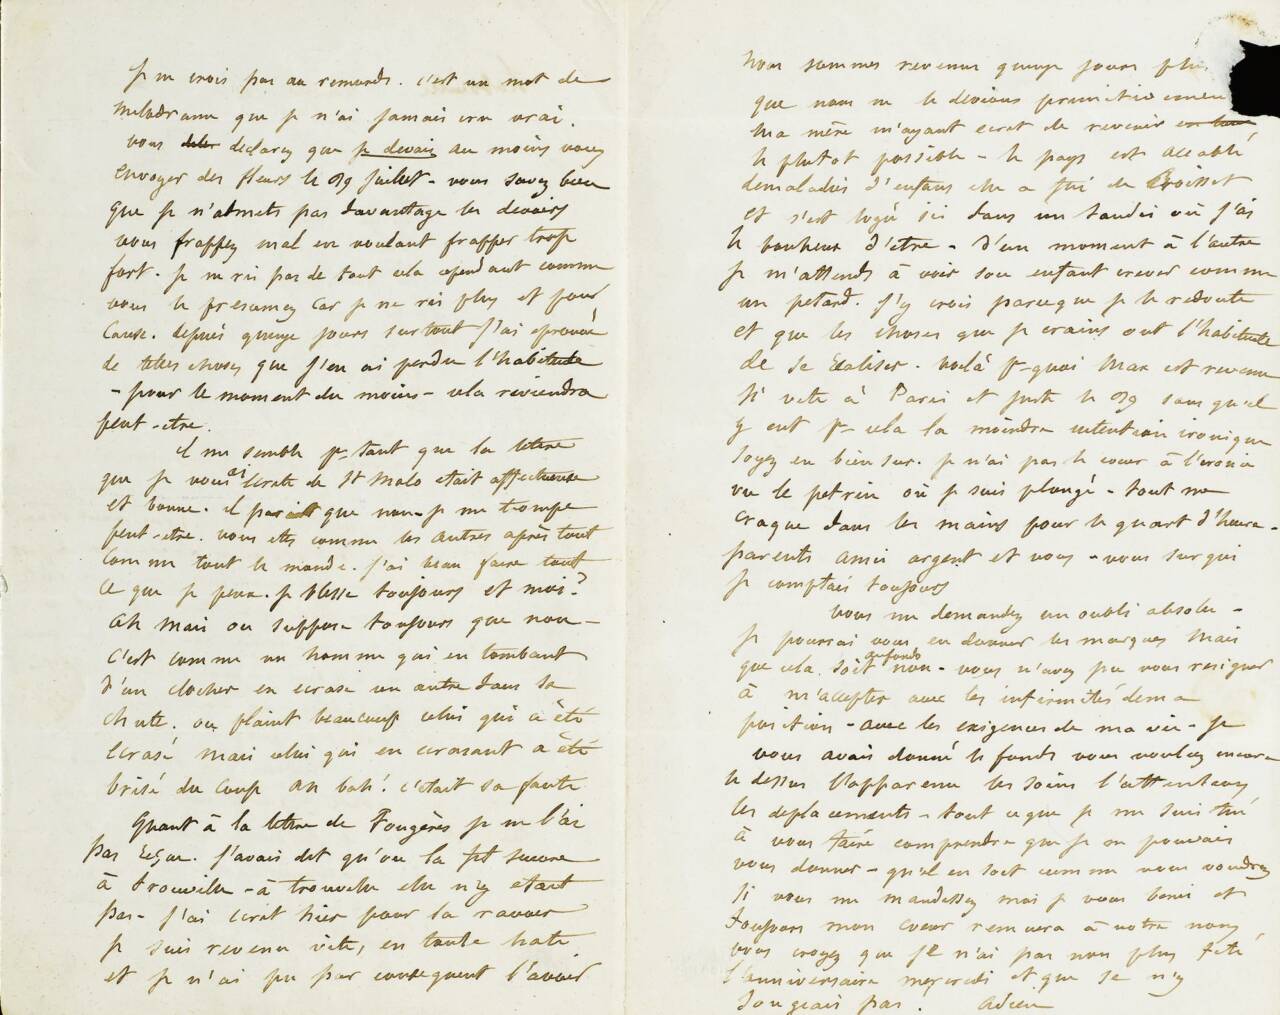 Je ne crois pas au remords. c'est un mot de
melodrame que je n'ai jamais cru vrai.
vous declarez que je devais au moins vous
envoyer des fleurs le 29 juillet - vous savez bien
que je n'admets pas davantage les devoirs
vous frappez mal en voulant frapper trop
fort. je ne ris pas de tout cela cependant comme
vous le presumez car je ne ris plus et pour
cause. depuis quinze jours surtout j'ai eprouvé
de telles choses que j'en ai perdu l'habitude
- pour le moment du moins - cela reviendra
peut-etre.
il me semble p-tant que la lettre
que je vous ai ecrite de St Malo etait affectueuse
et bonne. il parait que non - je me trompe
peut-etre. vous etes comme les autres après tout
comme tout le monde. j'ai beau faire tout
ce que je peux. je blesse toujours et moi?
Ah mais on suppose toujours que non -
c'est comme un homme qui en tombant
d'un clocher en ecrase un autre dans sa
chute. on plaint beaucoup celui qui a été
ecrasé mais celui qui en ecrasant a été
brisé du coup ah bah! c'etait sa faute
Quant à la lettre de Fougères je ne l'ai
pas reçue. j'avais dit qu'on la fit suivre
à trouville - à trouville elle n'y etait
pas - j'ai ecrit hier pour la ravoir
je suis revenu vite, en toute hate
et je n'ai pu par consequent l'avoir
Nous sommes revenus quinze jours plus
que nous ne le devions primitivement
ma mère m'ayant ecrit de revenir
le plutot possible - le pays est accablé
de maladies d'enfans elle a fui de Croisset
et s'est logée ici dans un taudis où j'ai
le bonheur d'etre - D'un moment à l'autre
je m'attends à voir son enfant crever comme
un petard. j'y crois parceque je le redoute
et que les choses que je crains ont l'habitude
de se realiser. voilà p-quoi Max est revenu
si vite à Paris et juste le 29 sans qu'il
y eut p- cela la moindre intention ironique
soyez en bien sur. je n'ai pas le coeur à l'ironie
vu le petrin où je suis plongé - tout me
craque dans les mains pour le quart d'heure -
parents amis argent et vous - vous sur qui
je comptais toujours
vous me demandez un oubli absolu -
je pourrai vous en donner les marques mais
que cela soit au fonds non - vous n'avez pu vous resigner
à m'accepter avec les infirmités de ma
position - avec les exigences de ma vie - je
vous avais donné le fonds vous vouliez encore
le dessus l'apparence les soins l'attention
les deplacements - tout ce que je me suis tué
à vous faire comprendre que je ne pouvais
vous donner - qu'il en soit comme vous voudrez
si vous me maudissez moi je vous benis et
toujours mon coeur remuera à votre nom,
vous croyez que je n'ai pas non plus fété
l'anniversaire mercredi et que je n'y
songeais pas. Adieu